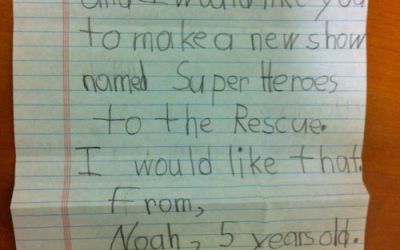 and I would like you
to make a new show
named Super Heroes
to the Rescue.
I would like that.
From,
Noah, 5 years old.